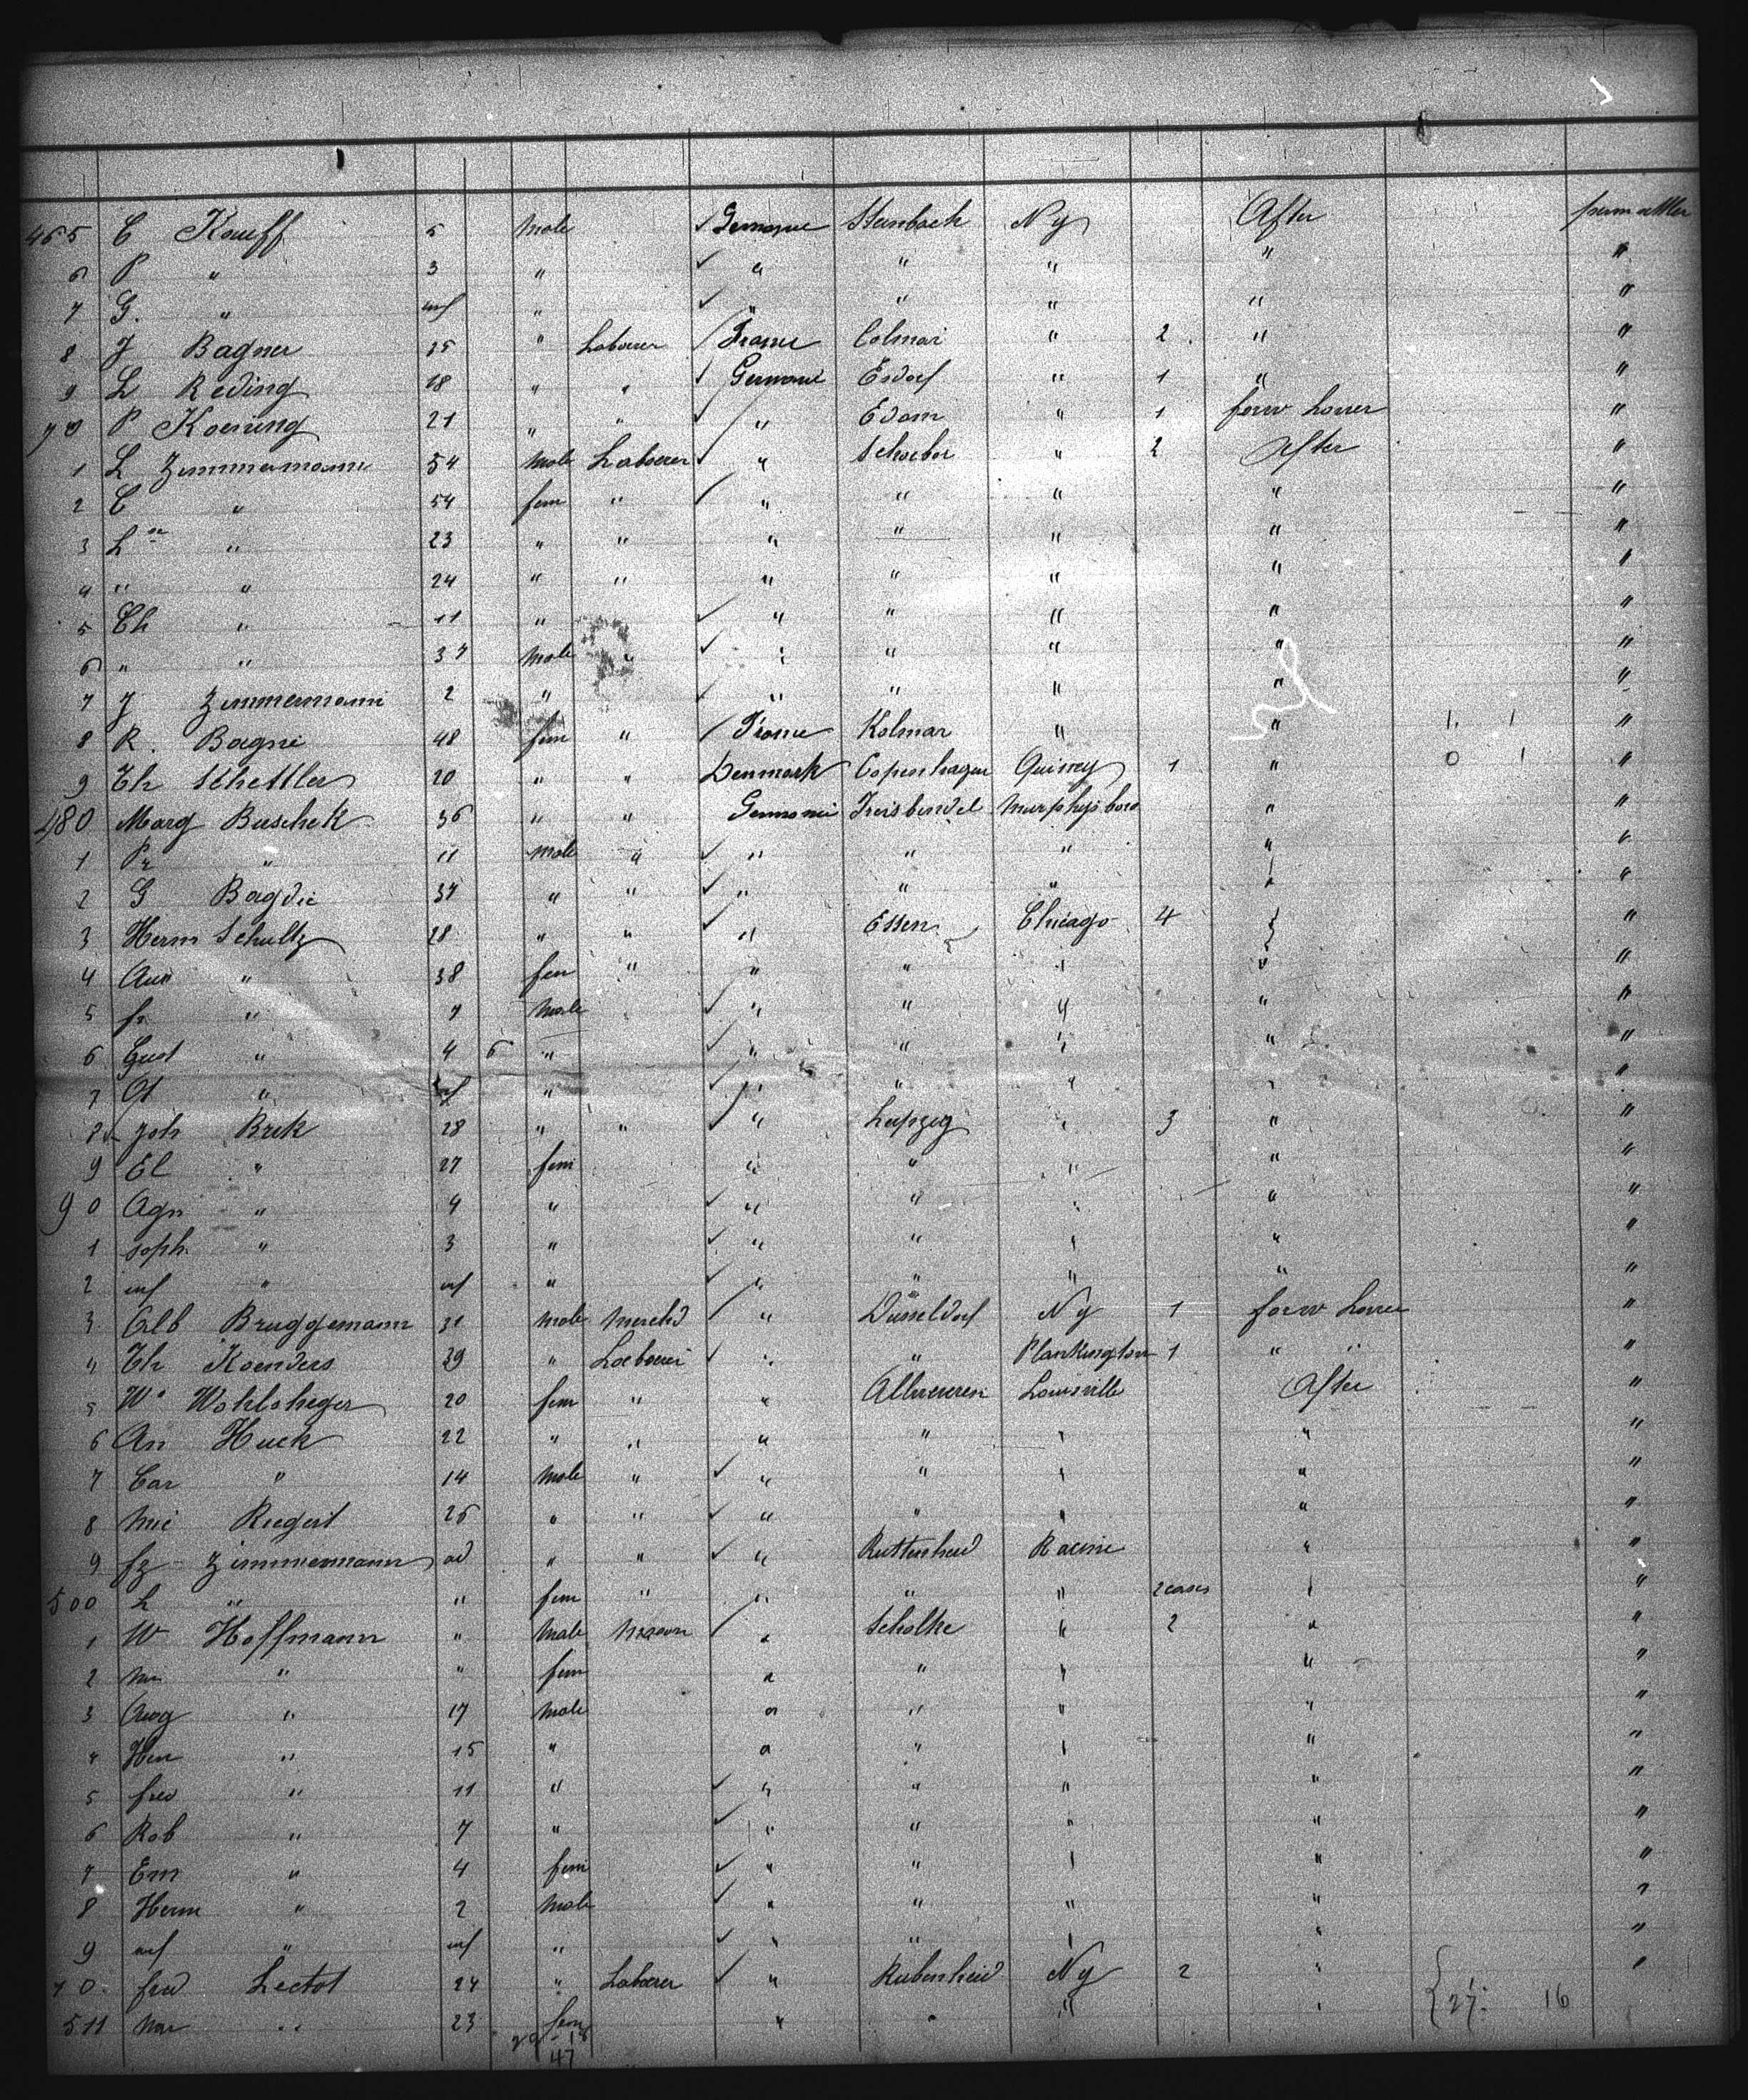 465 C Kauff 5 male Germanie Steinbach N y After perm settler
6 P " 3 " " " " " "
7 G. " inf " " " " " "
8 J Bagner 25 " Laborer France Colmar " 2 " "
9 L Reding 18 " " Germanie Esdorf " 1 " "
70 P Koening 21 " " " Edam " 1 forw "
1 L Zimmermann 54 male Laborer " " 2 After "
2 C " 54 fem " " " " " "
3 L " 23 " " " " " " "
4 " " 24 " " " " " " "
5 Ch " 11 " " " " " "
6 " " 37 male " " " " " "
7 J Zimmermann 2 " " " " " "
8 R. Bagne 48 fem " France Kolmar " " 1. 1 "
9 Th Schettler 20 " " Denmark Copenhagen Quincy 1 " 0 1 "
480 Marg Buschek 36 " " Germanie Murphysboro " "
1 Pr " 11 male " " " " " "
2 G Bagdie 37 " " " " " " "
3 Herm Schultz 28 " " " Essen Chicago 4 "
4 " 38 fem " " " " " "
5 fr " 7 male " " " " "
6 Gust " 4 6 " " " " " "
7 Ot " inf " " " " " "
8 Joh Brek 28 " " " Leipzig " 3 " "
9 El " 27 fem " " " " "
90 Agn " 4 " " " " " "
1 soph. " 3 " " " " " "
2 inf " inf " " " " " "
3 Alb Bruggemann 31 male merchd " Düsseldorf N y 1 forw "
4 Th Koenders 29 " Laborer " " Plankington 1 " " "
5 W. 20 fem " " Louisville After "
6 An Huck 22 " " " " " " "
7 Car " 14 male " " " " " "
8 Mic Riegert 26 " " " " " " "
9 fz Zimmermann ad " " " Racine " "
500 L " " fem " " " " 2 cases " "
1 W Hoffmann " male mason " Scholke " 2 " "
2 " " fem " " " " "
3 Aug " 17 male " " " " "
4 Hen " 15 " " " " " "
5 fred " 11 " " " " " "
6 Rob " 7 " " " " " "
7 Em " 4 fem " " " " "
8 Herm " 2 male " " " " "
9 inf " inf " " " " " "
10. fred Lectot 24 " Laborer " N y 2 " "
511 Mar " 23 fem " " " " 27. 16
29 18
47